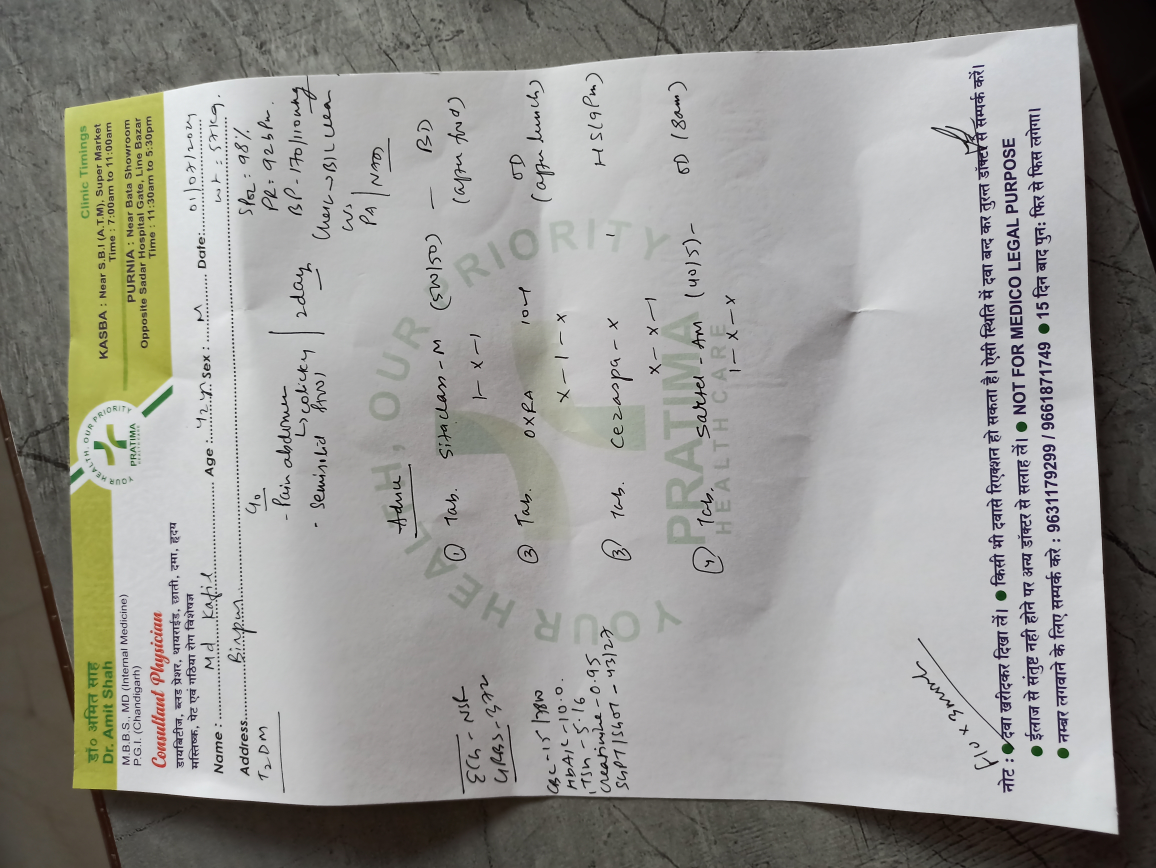 डॉ० अमित साह
Dr. Amit Shah
M.B.B.S., MD (Internal Medicine)
P.G.I. (Chandigarh)
Consultant Physician
डायबिटीज, ब्लड प्रेशर, थायराईड, छाती, दमा, हृदय
मस्तिष्क, पेट एवं गठिया रोग विशेषज्ञ
YOUR HEALTH, OUR PRIORITY
PRATIMA
HEALTH CARE
Clinic Timings
KASBA : Near S.B.I (A.T.M), Super Market
Time : 7:00am to 11:00am
PURNIA : Near Bata Showroom
Opposite Sadar Hospital Gate, Line Bazar
Time : 11:30am to 5:30pm
Name : Md Kafil Age : 42 yr Sex : M Date: 01/07/2024
Address Wt : 57kg.
T2DM
c/o
- Pain abdomen
↳ colicky
- Semisolid stool
2 days
SPO2 : 98%
PR : 92 bpm.
BP - 170/110 mmHg
Chest → B/L Clear
PA | NAD
ECG - NSR
GRBS - 372
CBC - 15/7800
HbA1C - 10.0.
TSH - 5.16
Creatinine - 0.95
SGPT/SGOT - 43/27
Advice
① Tab. Sitaclass - M (500/50) — BD
1 - x - 1 (after food)
② Tab. OXRA 10mg OD
x - 1 - x (after lunch)
③ Tab. Cezanpa - x HS (9pm)
x - x - 1
④ Tab. Sartel - AM (40/5) - OD (8am)
1 - x - x
YOUR HEALTH, OUR PRIORITY
PRATIMA
HEALTH CARE
नोट : ● दवा खरीदकर दिखा लें। ● किसी भी दवासे रिएक्शन हो सकता है। ऐसी स्थिति में दवा बन्द कर तुरन्त डॉक्टर से सम्पर्क करें।
● ईलाज से संतुष्ट नही होने पर अन्य डॉक्टर से सलाह लें। ● NOT FOR MEDICO LEGAL PURPOSE
● नम्बर लगवाने के लिए सम्पर्क करे : 9631179299 / 9661871749 ● 15 दिन बाद पुन: फिर से फिस लगेगा।